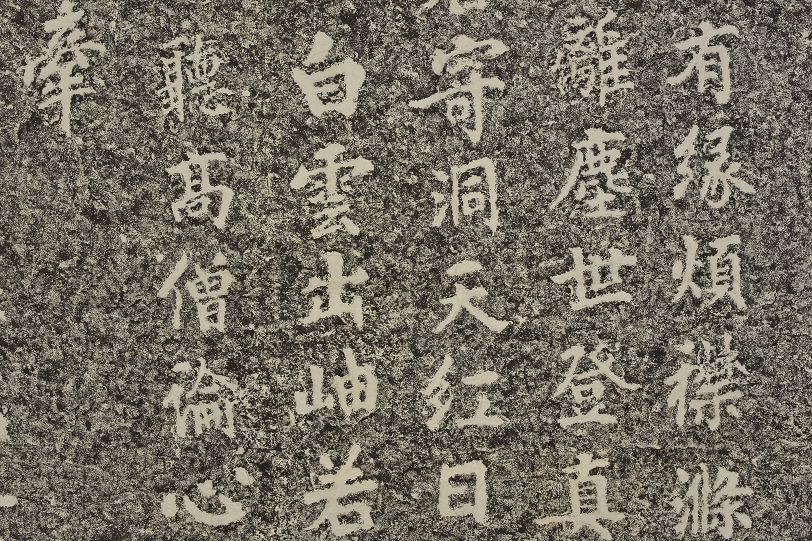 有緣煩襟滌
離塵世登真
守洞天紅日
白雲出岫若
聽高僧論心
牽